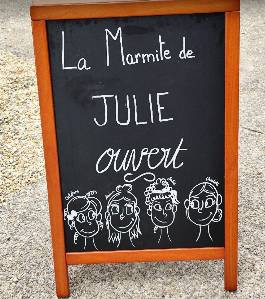 La Marmite de
JULIE
ouvert